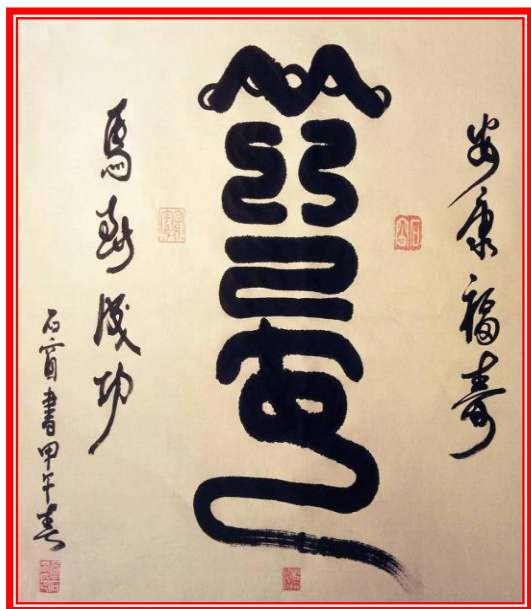 安康福寿
馬到成功
石 書甲午春